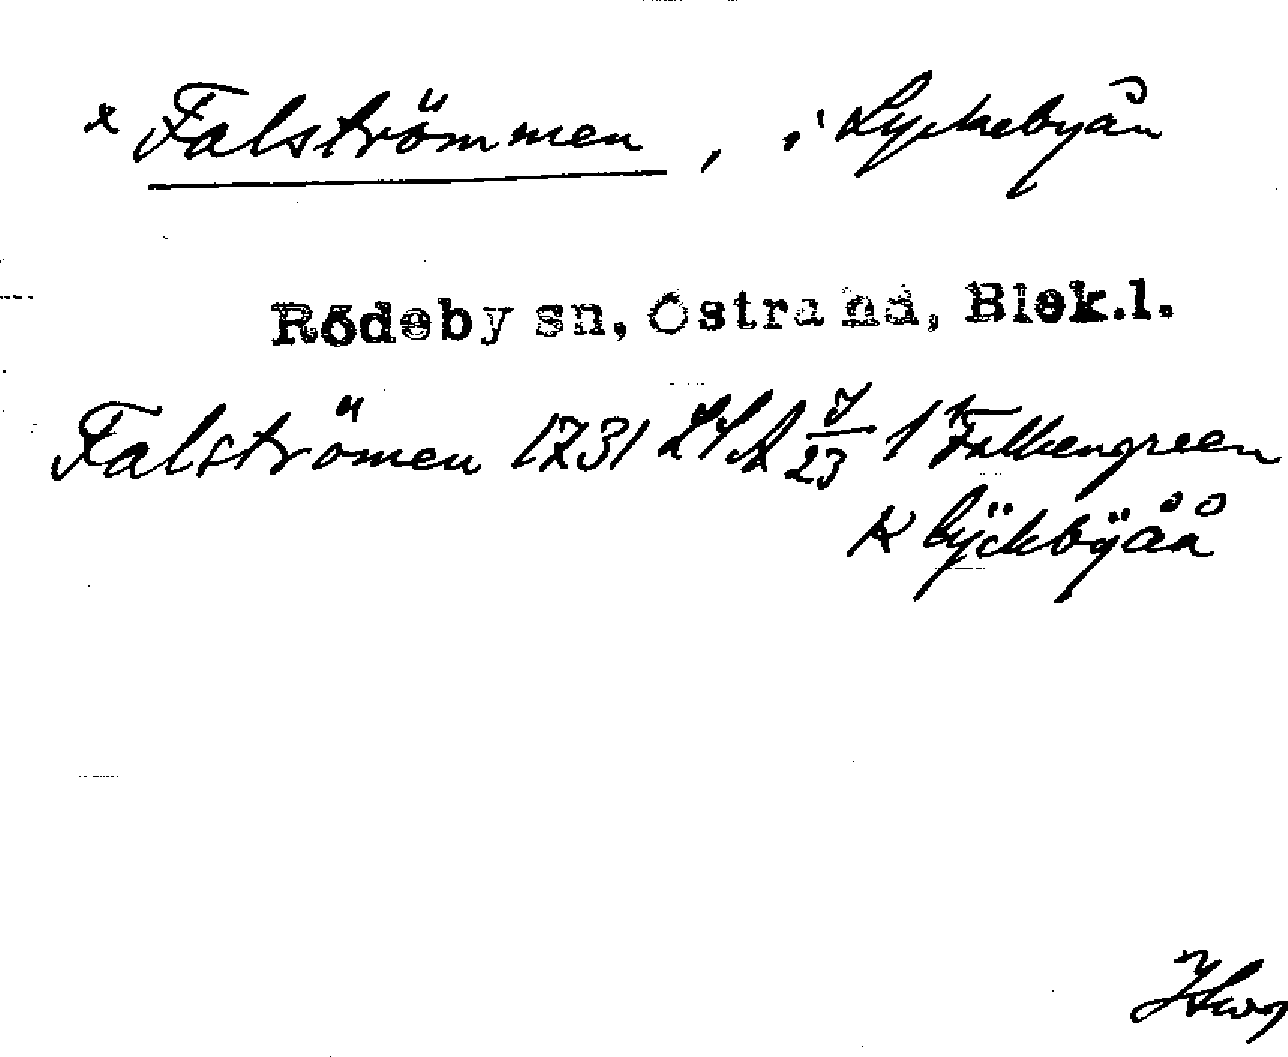 x Falströmmen, i Lyckebyån
Rödeby sn, Östra hd, Blek.l.
Falströmen 1731 LSA 23 1 Falkengreen
lÿckbÿåå